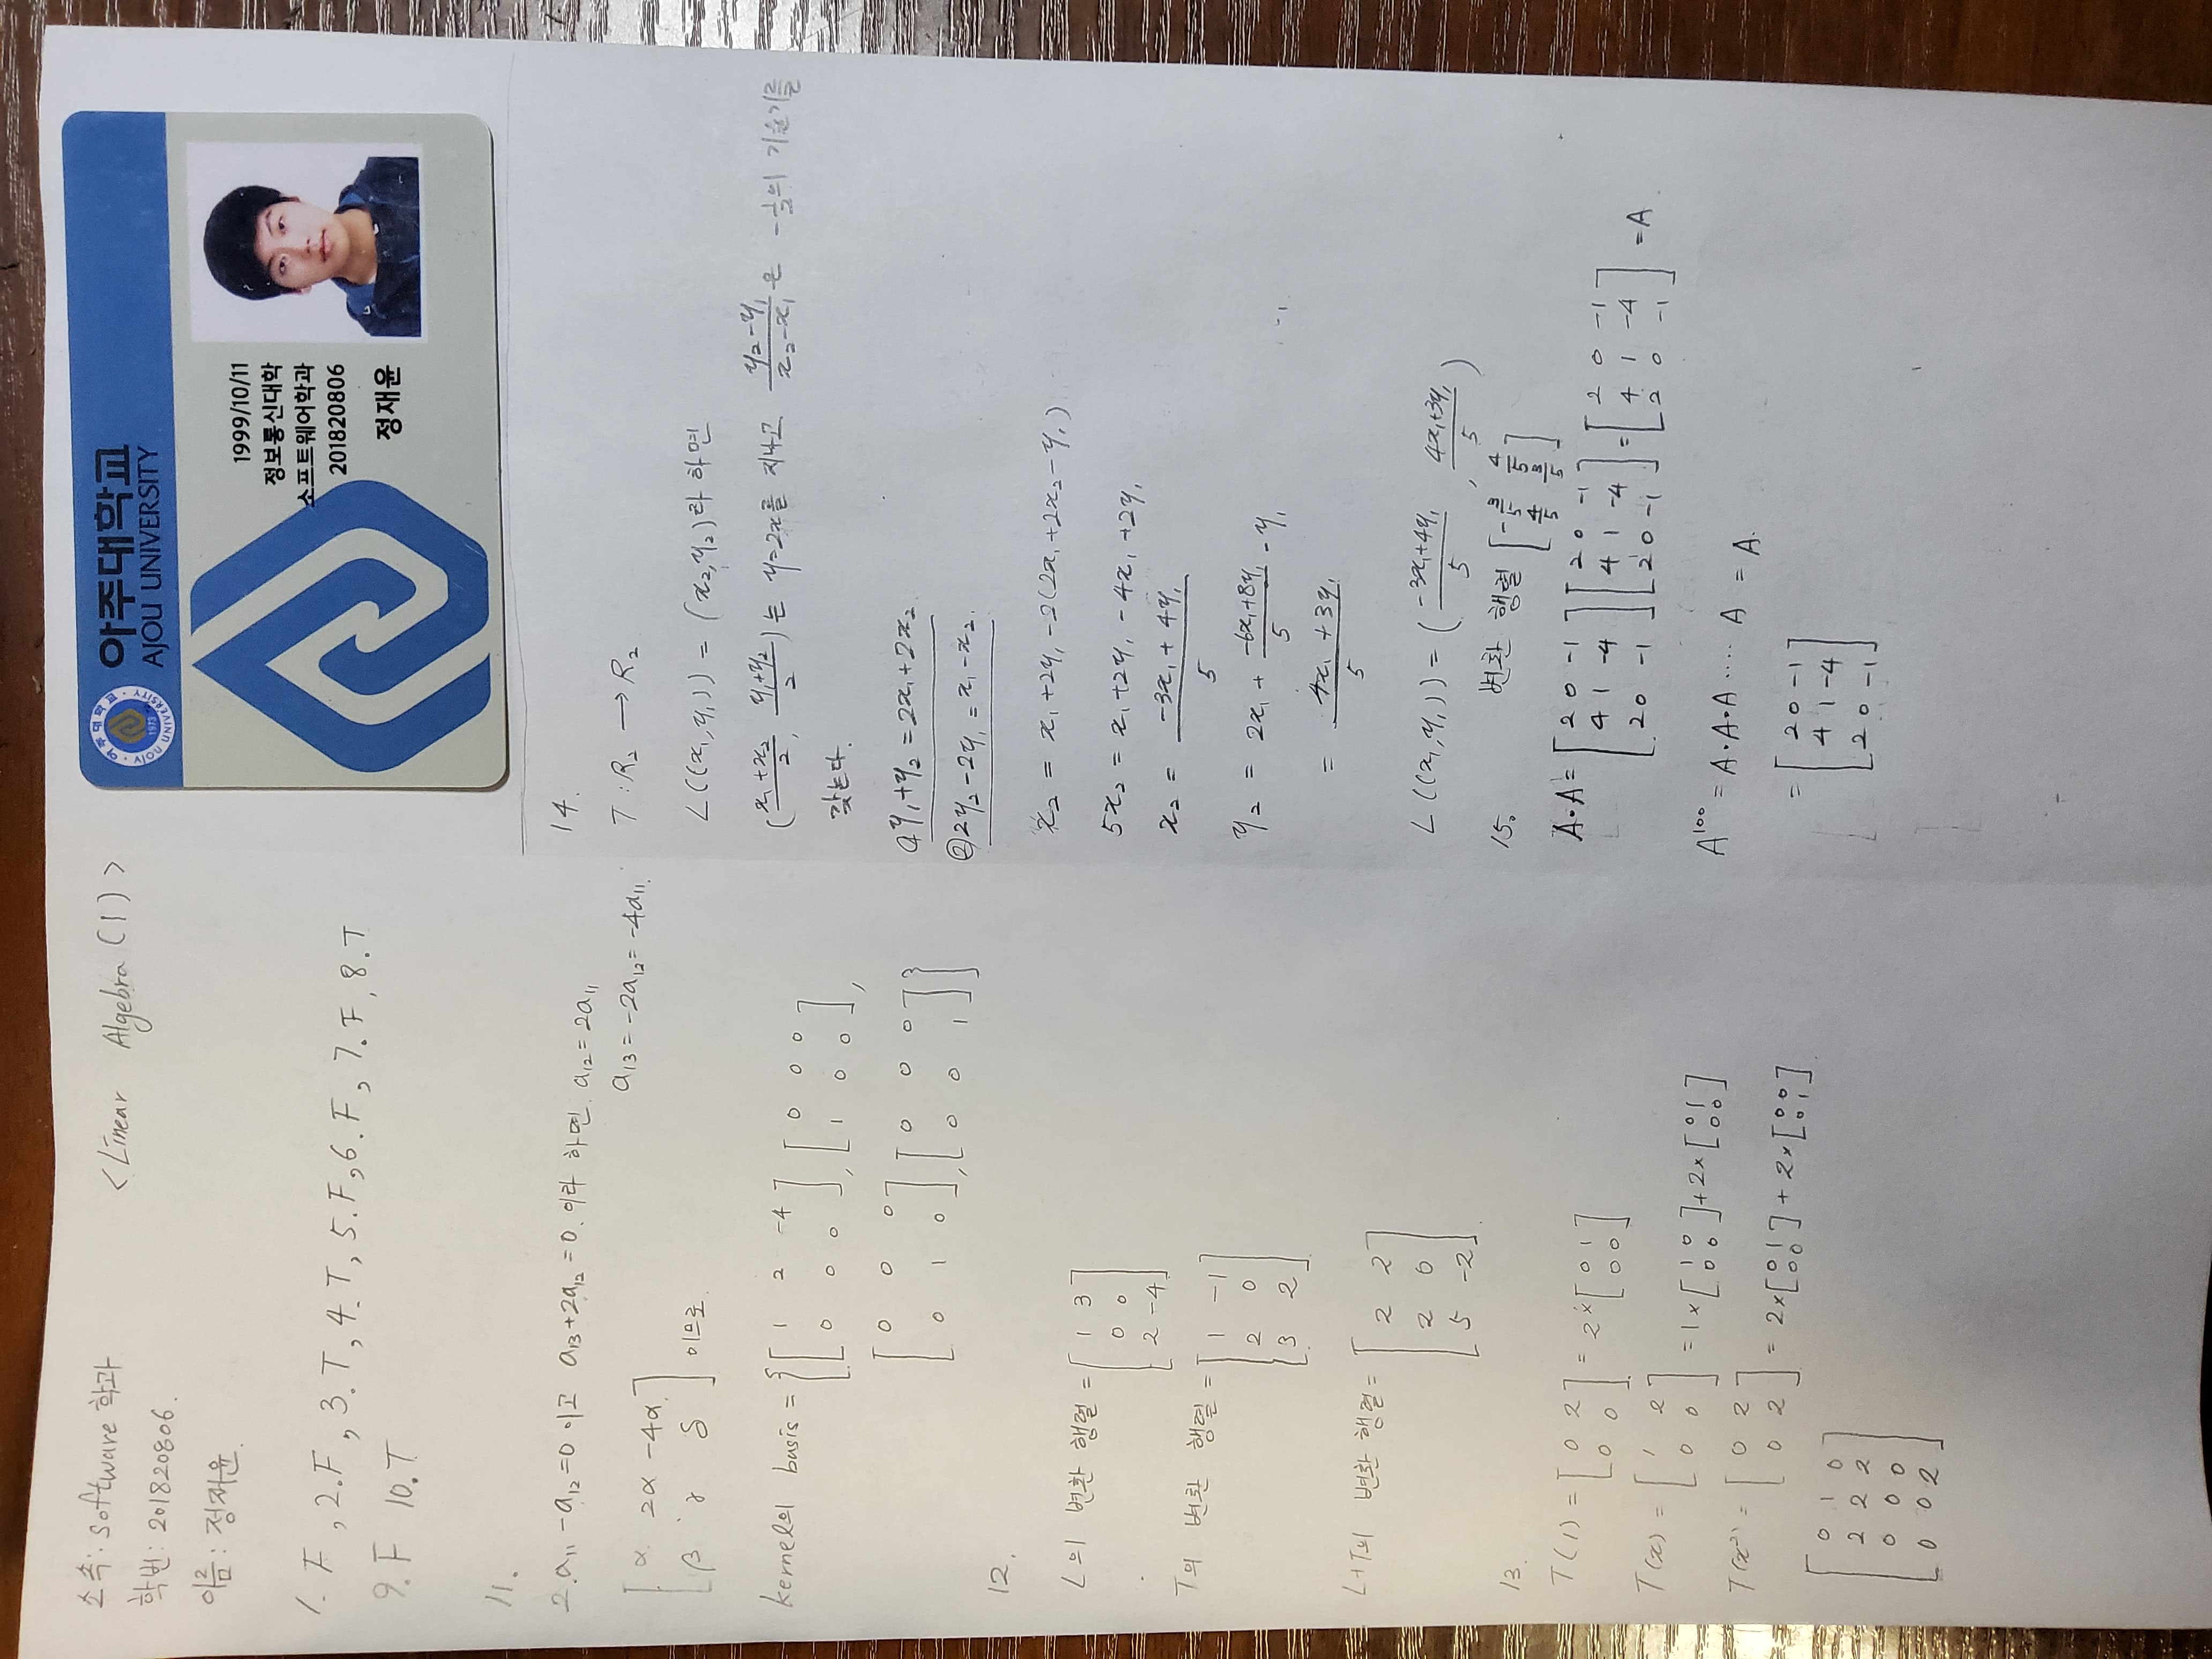 소속: Software 학과
학번: 201820806.
이름: 정재윤.
<Linear Algebra (1)>
아주대학교
AJOU UNIVERSITY
아주대학교
AJOU UNIVERSITY
1973
1999/10/11
정보통신대학
소프트웨어학과
201820806
정재윤
1. F, 2. F, 3. T, 4. T, 5. F, 6. F, 7. F, 8. T
9. F 10. T
11.
2a₁₁ - a₁₂ = 0 이고 a₁₃ + 2a₁₂ = 0. 이라 하면. a₁₂ = 2a₁₁
a₁₃ = -2a₁₂ = -4a₁₁.
[ α 2α -4α
β γ δ ] 이므로.
kernel의 basis = { [ 1 2 -4
0 0 0 ], [ 0 0 0
1 0 0 ],
[ 0 0 0
0 1 0 ], [ 0 0 0
0 0 1 ] }
12.
L의 변환 행렬 = [ 1 3
0 0
2 -4 ]
T의 변환 행렬 = [ 1 -1
2 0
3 2 ]
L+T의 변환 행렬 = [ 2 2
2 0
5 -2 ]
13.
T(1) = [ 0 2
0 0 ] = 2 × [ 0 1
0 0 ]
T(x) = [ 1 2
0 0 ] = 1 × [ 1 0
0 0 ] + 2 × [ 0 1
0 0 ]
T(x²) = [ 0 2
0 2 ] = 2 × [ 0 1
0 0 ] + 2 × [ 0 0
0 1 ]
[ 0 1 0
2 2 2
0 0 0
0 0 2 ]
14.
T : R₂ → R₂
L((x₁, y₁)) = (x₂, y₂)라 하면
((x₁+x₂)/2, (y₁+y₂)/2)는 y=2x를 지나고 (y₂-y₁)/(x₂-x₁)은 -½의 기울기를
갖는다.
y₁+y₂ = 2x₁+2x₂
② 2y₂-2y₁ = x₁-x₂.
x₂ = x₁+2y₁-2(2x₁+2x₂-y₁)
5x₂ = x₁+2y₁-4x₁+2y₁
x₂ = (-3x₁+4y₁)/5
y₂ = 2x₁ + (-6x₁+8y₁)/5 - y₁
= (4x₁+3y₁)/5
L((x₁,y₁)) = ((-3x₁+4y₁)/5, (4x₁+3y₁)/5)
변환 행렬 [ -3/5 4/5
4/5 3/5 ]
15.
A·A = [ 2 0 -1
4 1 -4
2 0 -1 ] [ 2 0 -1
4 1 -4
2 0 -1 ] = [ 2 0 -1
4 1 -4
2 0 -1 ] = A
A¹⁰⁰ = A·A·A···· A = A.
= [ 2 0 -1
4 1 -4
2 0 -1 ]